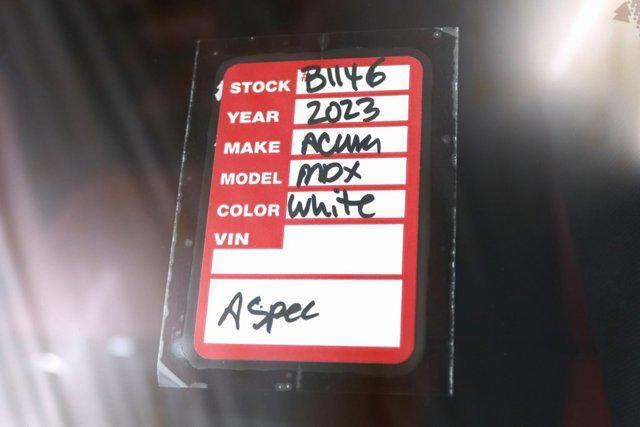 STOCK #B1146
YEAR 2023
MAKE ACURA
MODEL MDX
COLOR White
VIN
A Spec